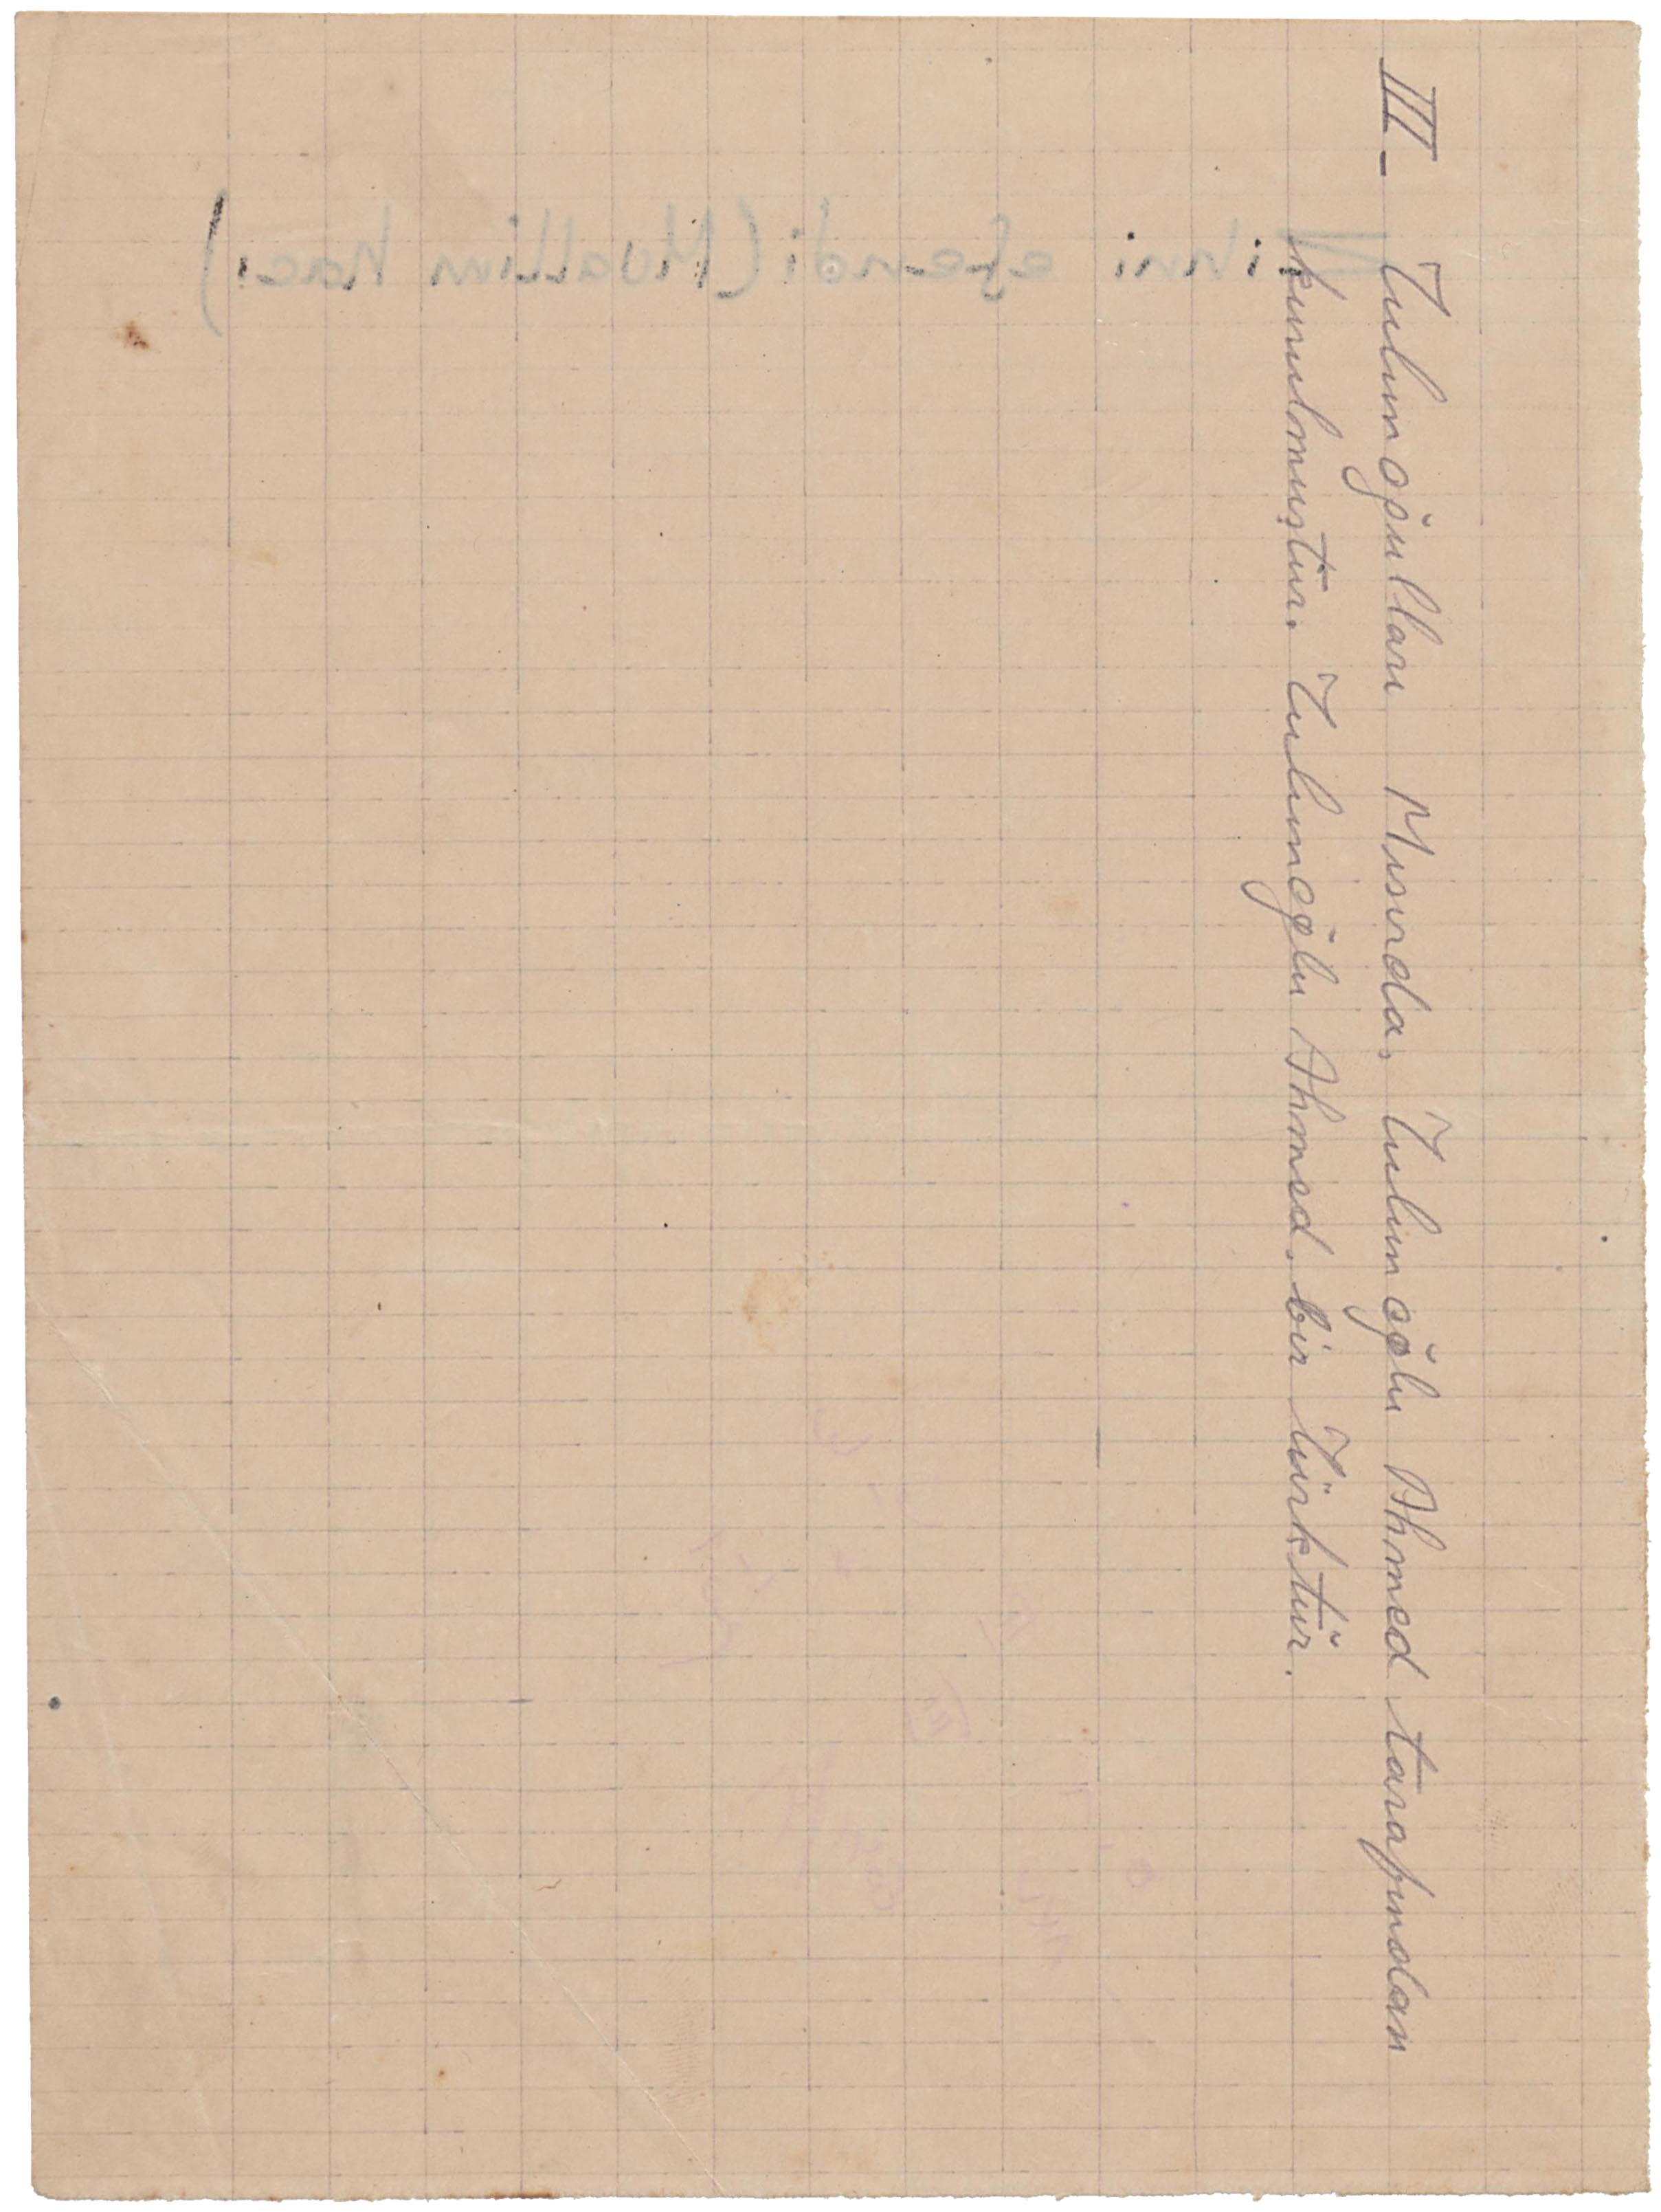 III- Tulunoğulları Mısırda, Tulunoğlu Ahmed tarafından
kurulmuştur. Tulunoğlu Ahmed, bir Türktür.
Zihni efendi (Muallim hacı)